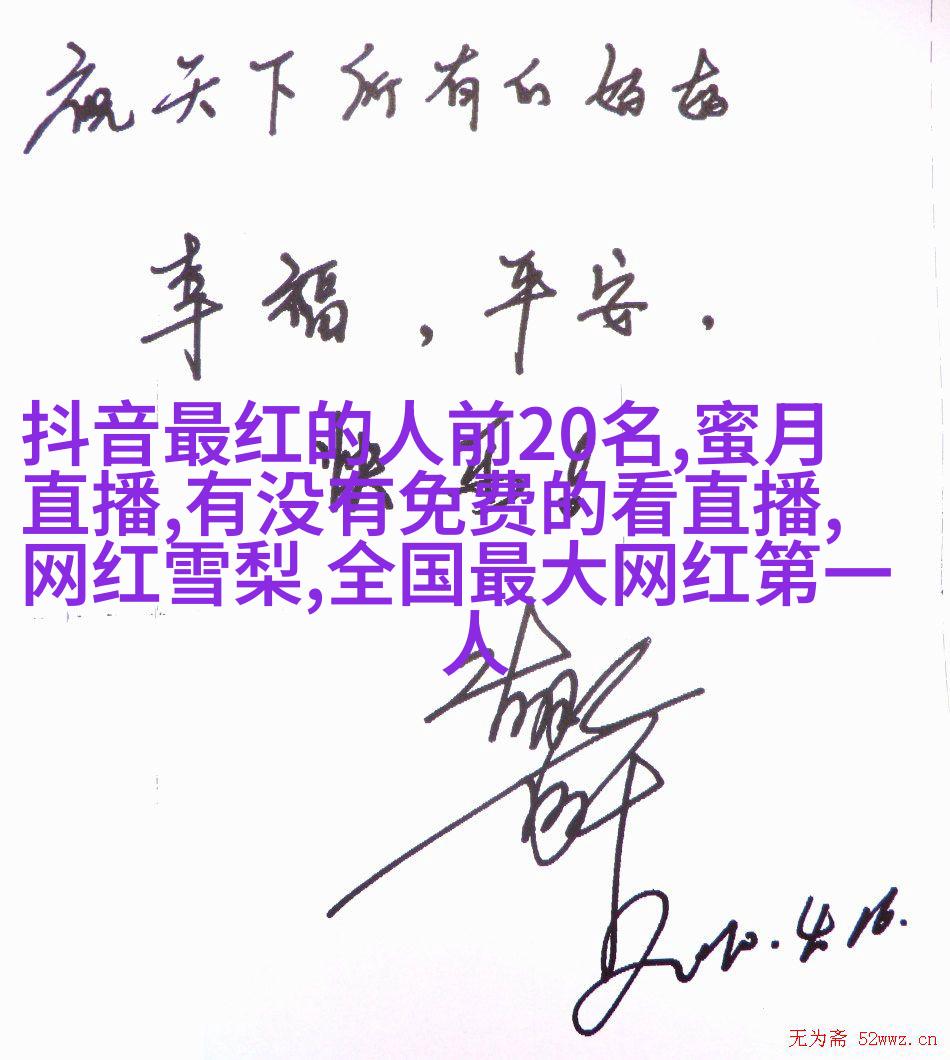 祝天下所有的妈妈
幸福，平安，
快乐！
抖音最红的人前20名,蜜月
直播,有没有免费的看直播,
网红雪梨,全国最大网红第一
人
2010.4.16.
无为斋 52wwz.cn